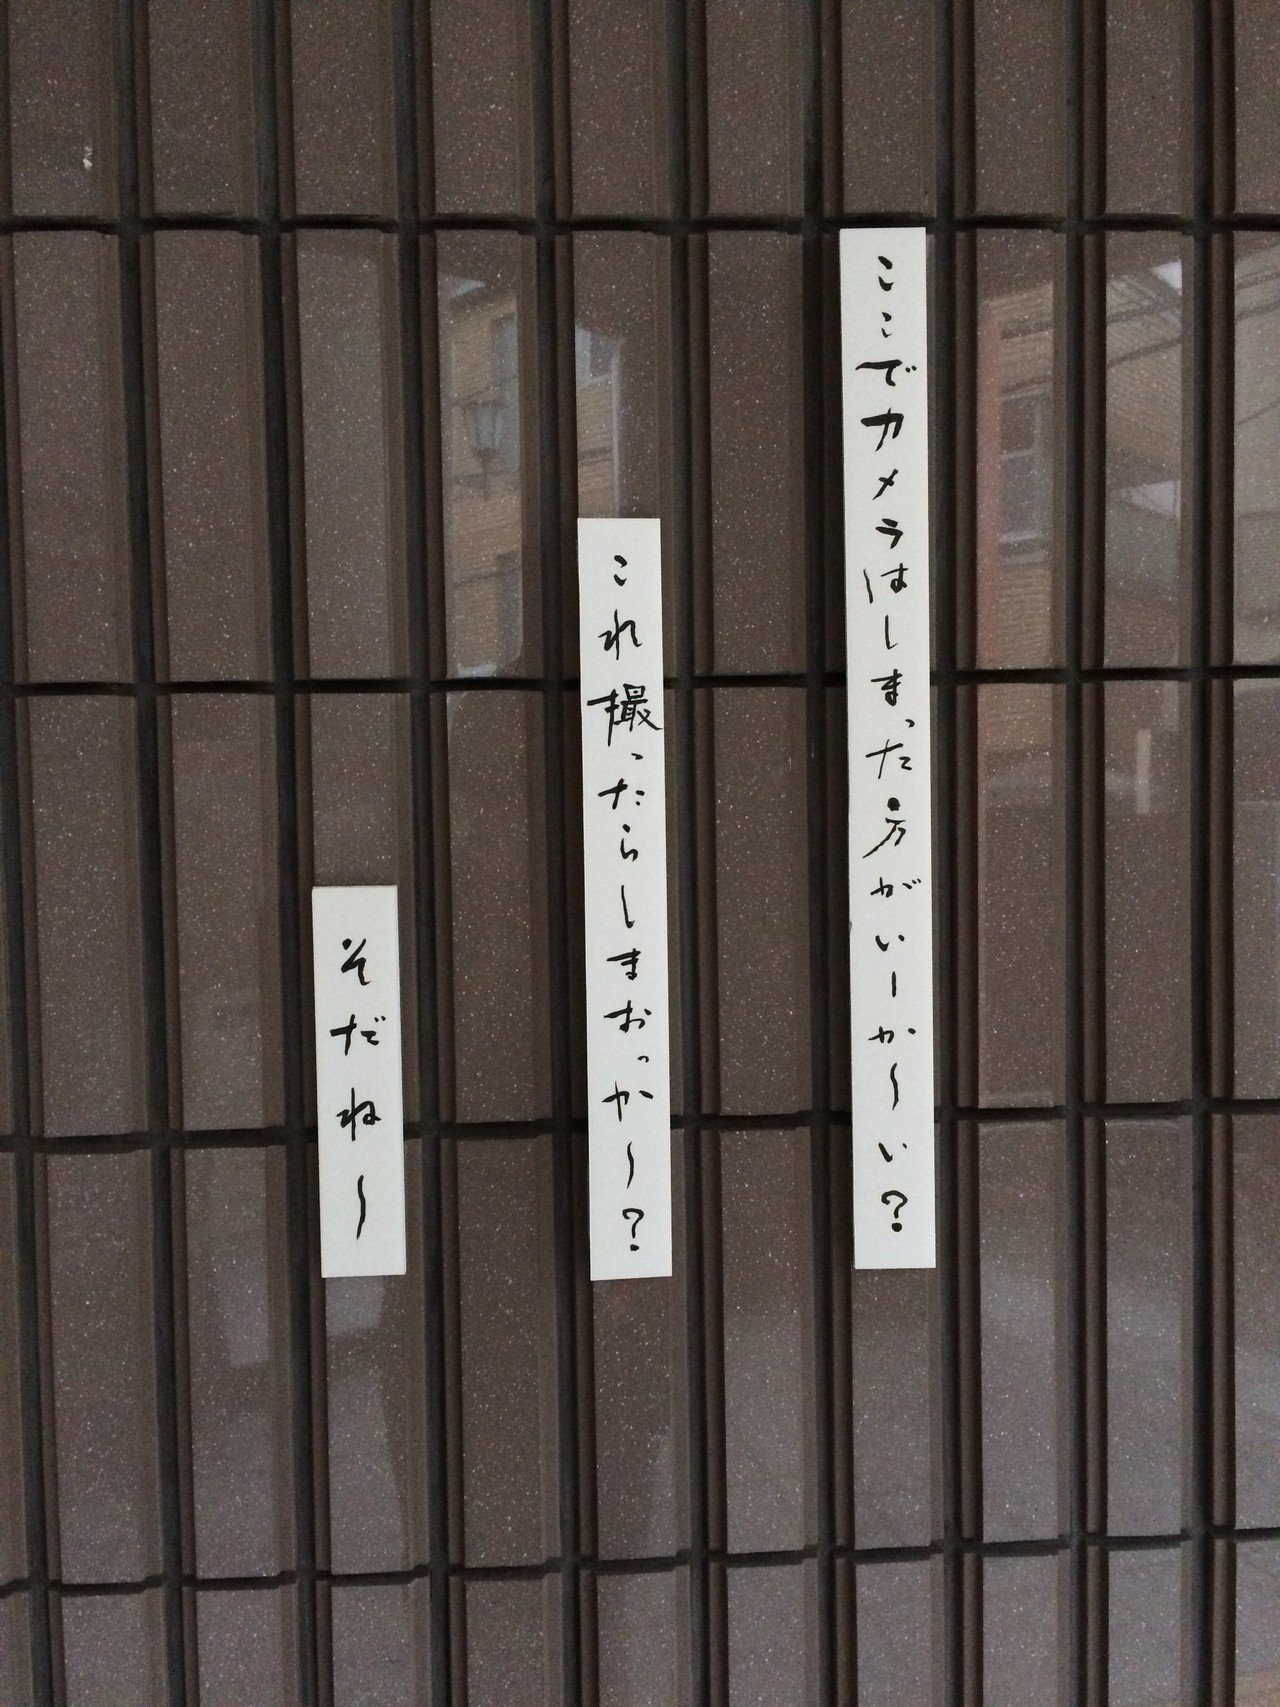 ここでカメラはしまった方がいーか〜い?
これ撮ったらしまおっか〜?
そだね〜